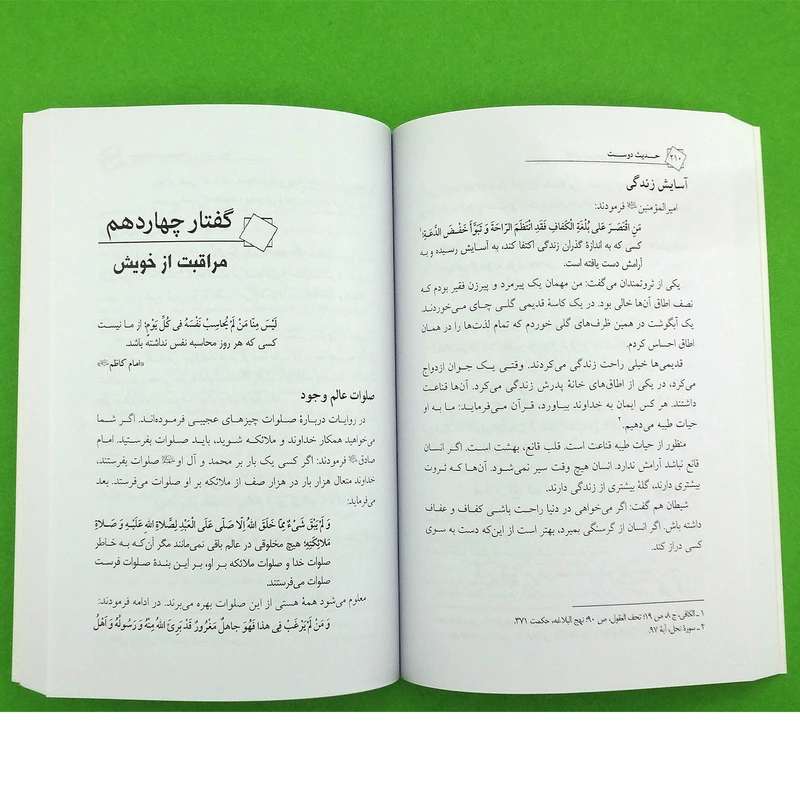 ۲۱۰ حدیث دوست
آسایش زندگی
امیرالمؤمنین فرمودند:
مَنِ اقْتَصَرَ عَلی بُلْغَةِ الْکَفافِ فَقَدِ انْتَظَمَ الرّاحَةَ وَ تَبَوَّأَ خَفْضَ الدَّعَةِ؛۱
کسی که به اندازهٔ گذران زندگی اکتفا کند، به آسایش رسیده و به
آرامش دست یافته است.
یکی از ثروتمندان می‌گفت: من مهمان یک پیرمرد و پیرزن فقیر بودم که
نصف اطاق آن‌ها خالی بود. در یک کاسهٔ قدیمی گلی چای می‌خوردند.
یک آبگوشت در همین ظرف‌های گلی خوردم که تمام لذت‌ها را در همان
اطاق احساس کردم.
قدیمی‌ها خیلی راحت زندگی می‌کردند. وقتی یک جوان ازدواج
می‌کرد، در یکی از اطاق‌های خانهٔ پدرش زندگی می‌کرد. آن‌ها قناعت
داشتند. هر کس ایمان به خداوند بیاورد، قرآن می‌فرماید: ما به او
حیات طیبه می‌دهیم.۲
منظور از حیات طیبه قناعت است. قلب قانع، بهشت است. اگر انسان
قانع نباشد آرامش ندارد. انسان هیچ وقت سیر نمی‌شود. آن‌ها که ثروت
بیشتری دارند، گلهٔ بیشتری از زندگی دارند.
شیطان هم گفت: اگر می‌خواهی در دنیا راحت باشی کفاف و عفاف
داشته باش. اگر انسان از گرسنگی بمیرد، بهتر است از این‌که دست به سوی
کسی دراز کند.
۱ ـ الکافی، ج ۸، ص ۱۹؛ تحف العقول، ص ۹۰؛ نهج البلاغه، حکمت ۳۷۱.
۲ ـ سورهٔ نحل، آیهٔ ۹۷.
گفتار چهاردهم
مراقبت از خویش
لَیْسَ مِنّا مَنْ لَمْ یُحاسِبْ نَفْسَهُ فِی کُلِّ یَوْمٍ؛ از ما نیست
کسی که هر روز محاسبه نفس نداشته باشد.
«امام کاظم»
صلوات عالم وجود
در روایات دربارهٔ صلوات چیزهای عجیبی فرموده‌اند. اگر شما
می‌خواهید همکار خداوند و ملائکه شوید، باید صلوات بفرستید. امام
صادق فرمودند: اگر کسی یک بار بر محمد و آل او صلوات بفرستد،
خداوند متعال هزار بار در هزار صف از ملائکه بر او صلوات می‌فرستد. بعد
می‌فرماید:
وَ لَمْ یَبْقَ شَیْءٌ مِمّا خَلَقَ اللهُ اِلّا صَلّی عَلَی الْعَبْدِ لِصَلاةِ اللهِ عَلَیْهِ وَ صَلاةِ
مَلائِکَتِهِ؛ هیچ مخلوقی در عالم باقی نمی‌مانند مگر آن‌که به خاطر
صلوات خدا و صلوات ملائکه بر او، بر این بندهٔ صلوات فرست
صلوات می‌فرستند.
معلوم می‌شود همهٔ هستی از این صلوات بهره می‌برند. در ادامه فرمودند:
وَ مَنْ لَمْ یَرْغَبْ فِی هذا فَهُوَ جاهِلٌ مَغْرُورٌ قَدْ بَرِئَ اللهُ مِنْهُ وَ رَسُولُهُ وَ أَهْلُ